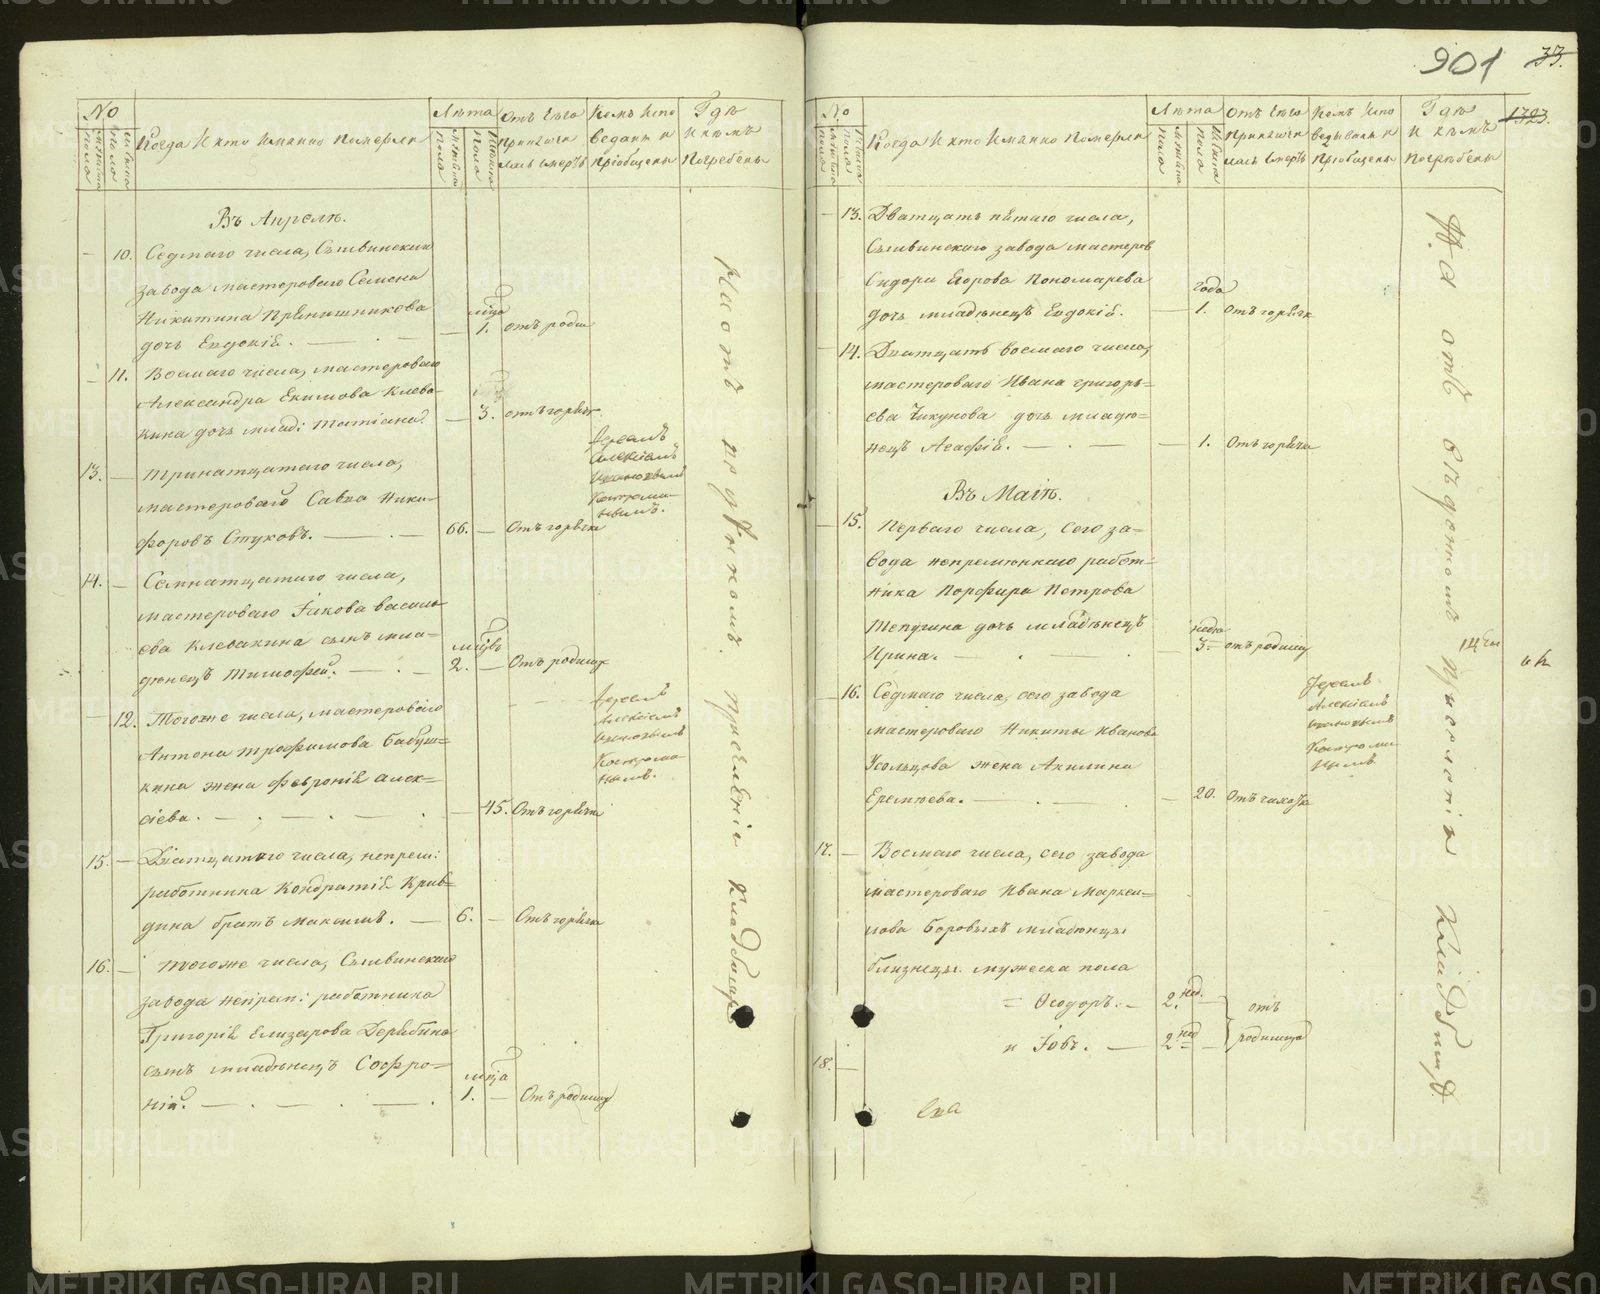 901 33.
1323.
№
Мужеска пола
Женска пола
Когда и кто именно померли
Лѣта
Мужеска пола
Женска пола
Отъ чего приключилась смерть
Кемъ исповеданы и приобщены
Где и кемъ погребены
Въ Апреле.
10. Седмаго числа, Сылвинскаго
завода мастероваго Семена
Никитина Пряничникова
дочь Евдокія.
мѣца
1. отъ родим
11. Восмаго числа, мастероваго
Александра Екимова Клева-
кина дочь млад: Татіана.
3. отъ горячк
13. Тринатцатаго числа,
мастероваго Савва Ники-
форовъ Стуковъ.
66. Отъ горячки
Иереемъ
Алексіемъ
Іоанновымъ
Костроми-
нымъ.
14. Семнатцатаго числа,
мастероваго Іакова Василь-
ева Клевакина сынъ мла-
денецъ Тимофей.
мѣцовъ
2. Отъ родимц
12. Тогоже числа, мастероваго
Антона Трофимова Бабуш-
кина жена Февронія Алек-
сіева.
45. Отъ горячки
Иереемъ
Алексіемъ
Іоанновымъ
Костроми-
нымъ.
15. Дватцатаго числа, непрем:
работника Кондратія Крив-
дина братъ Максимъ.
6. Отъ горячки
16. Тогоже числа, Сылвинскаго
завода непрем: работника
Григорія Елизарова Дерябина
сынъ младенецъ Софро-
ній.
мѣца
1. Отъ родимц
На отъ
№
Мужеска пола
Женска пола
Когда и кто именно померли
Лѣта
Мужеска пола
Женска пола
Отъ чего приключилась смерть
Кемъ исповедываны и приобщены
Где и кемъ погребены
13. Дватцать пятаго числа,
Сылвинскаго завода мастеров
Сидора Егорова Пономарева
дочь младенецъ Евдокія.
года
1. Отъ горячк
14. Дватцать восмаго числа,
мастероваго Ивана Григорь-
ева Чикунова дочь младе-
нецъ Агафія.
1. Отъ горячки
Въ Маіе.
15. Перваго числа, сего за-
вода непременнаго работ-
ника Порфира Петрова
Тепугина дочь младенецъ
Ирина.
недел
3. отъ родимц
16. Седмаго числа, сего завода
мастероваго Никиты Иванова
Усольцова жена Акилина
Еремеева.
20. Отъ чахотки
Иереемъ
Алексіемъ
Іоанновымъ
Костроми-
нымъ
17. Восмаго числа, сего завода
мастероваго Ивана Маркел-
лова Боровыхъ младенцы
близнецы мужеска пола
Феодоръ. 2. нед.
18. и Іовъ. 2 нед
отъ родимца
METRIKI.GASO-URAL.RU